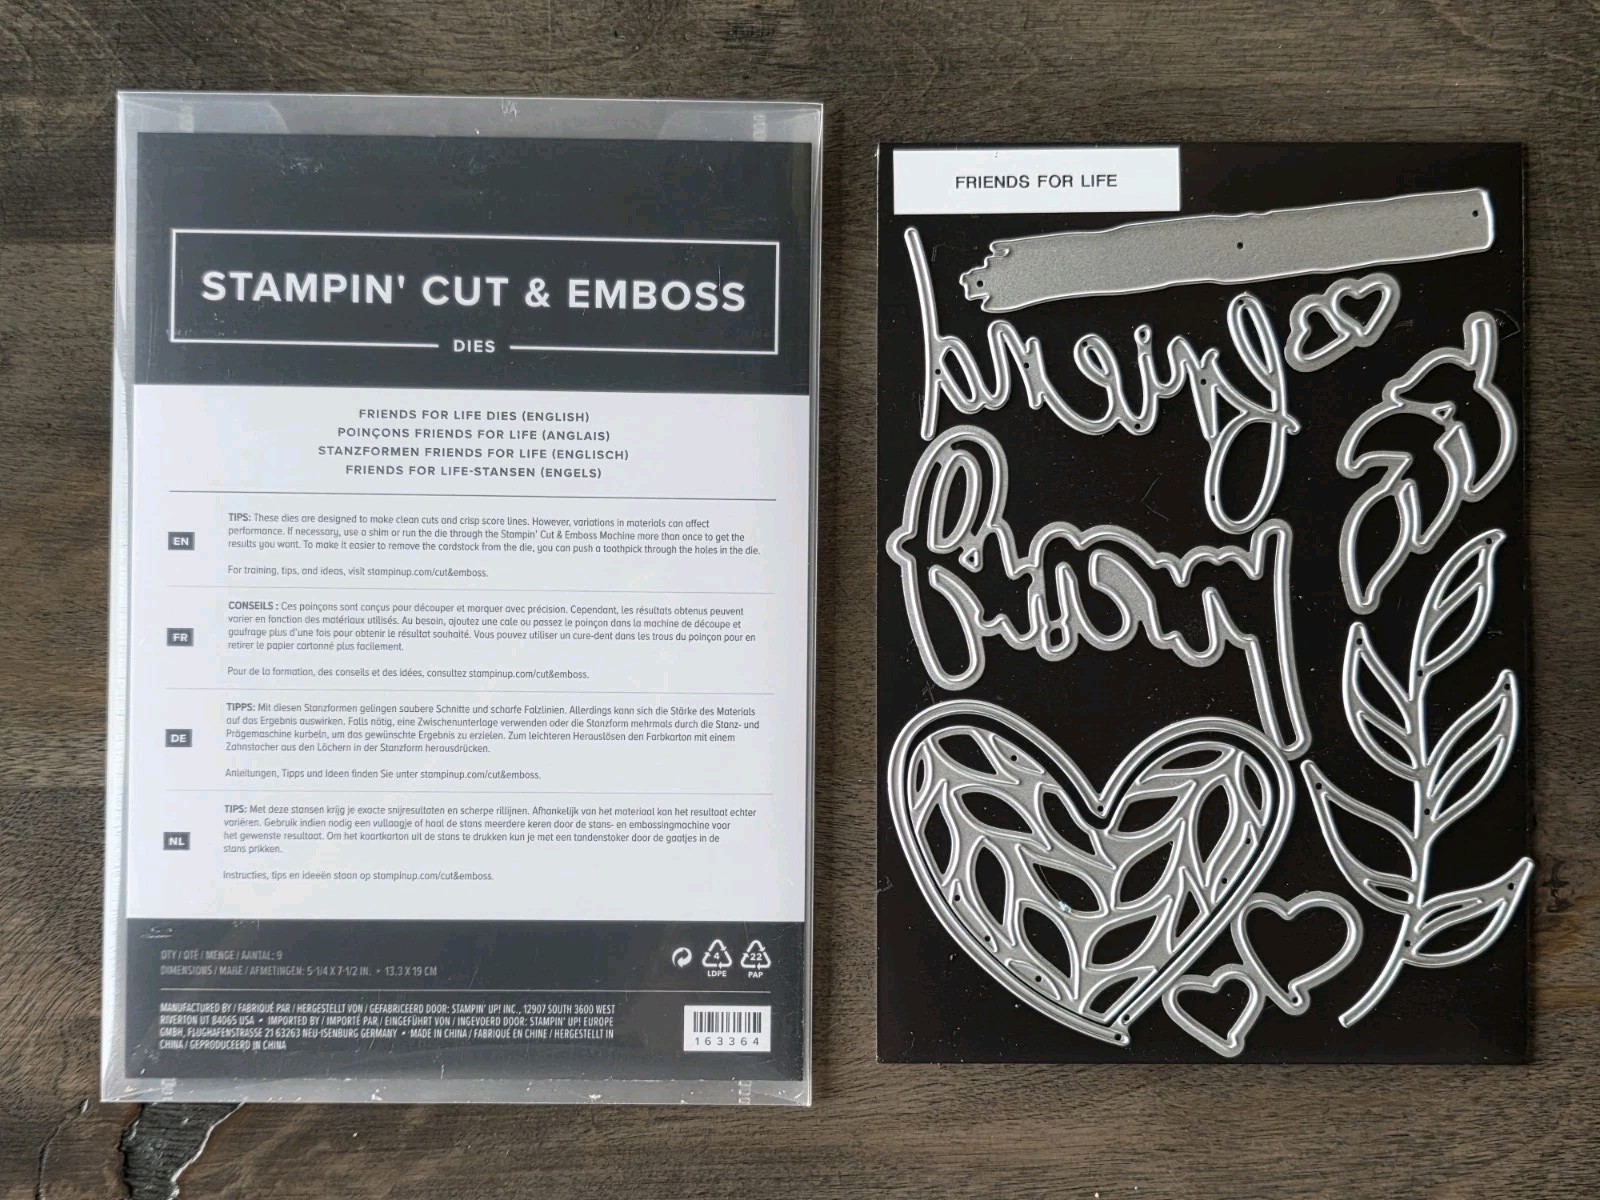 STAMPIN' CUT & EMBOSS
DIES
FRIENDS FOR LIFE DIES (ENGLISH)
POINÇONS FRIENDS FOR LIFE (ANGLAIS)
STANZFORMEN FRIENDS FOR LIFE (ENGLISCH)
FRIENDS FOR LIFE-STANSEN (ENGELS)
EN
TIPS: These dies are designed to make clean cuts and crisp score lines. However, variations in materials can affect
performance. If necessary, use a shim or run the die through the Stampin' Cut & Emboss Machine more than once to get the
results you want. To make it easier to remove the cardstock from the die, you can push a toothpick through the holes in the die.
For training, tips, and ideas, visit stampinup.com/cut&emboss.
FR
CONSEILS : Ces poinçons sont conçus pour découper et marquer avec précision. Cependant, les résultats obtenus peuvent
varier en fonction des matériaux utilisés. Au besoin, ajoutez une cale ou passez le poinçon dans la machine de découpe et
gaufrage plus d'une fois pour obtenir le résultat souhaité. Vous pouvez utiliser un cure-dent dans les trous du poinçon pour en
retirer le papier cartonné plus facilement.
Pour de la formation, des conseils et des idées, consultez stampinup.com/cut&emboss.
DE
TIPPS: Mit diesen Stanzformen gelingen saubere Schnitte und scharfe Falzlinien. Allerdings kann sich die Stärke des Materials
auf das Ergebnis auswirken. Falls nötig, eine Zwischenunterlage verwenden oder die Stanzform mehrmals durch die Stanz- und
Prägemaschine kurbeln, um das gewünschte Ergebnis zu erzielen. Zum leichteren Herauslösen den Farbkarton mit einem
Zahnstocher aus den Löchern in der Stanzform herausdrücken.
Anleitungen, Tipps und Ideen finden Sie unter stampinup.com/cut&emboss.
NL
TIPS: Met deze stansen krijg je exacte snijresultaten en scherpe rillijnen. Afhankelijk van het materiaal kan het resultaat echter
variëren. Gebruik indien nodig een vullaagje of haal de stans meerdere keren door de stans- en embossingmachine voor
het gewenste resultaat. Om het kaartkarton uit de stans te drukken kun je met een tandenstoker door de gaatjes in de
stans prikken.
Instructies, tips en ideeën staan op stampinup.com/cut&emboss.
QTY / QTÉ / MENGE / AANTAL: 9
DIMENSIONS / MAßE / AFMETINGEN: 5-1/4 X 7-1/2 IN. • 13.3 X 19 CM
4
LDPE
22
PAP
MANUFACTURED BY / FABRIQUÉ PAR / HERGESTELLT VON / GEFABRICEERD DOOR: STAMPIN' UP! INC., 12907 SOUTH 3600 WEST
RIVERTON UT 84065 USA • IMPORTED BY / IMPORTÉ PAR / EINGEFÜHRT VON / INGEVOERD DOOR: STAMPIN' UP! EUROPE
GMBH, FLUGHAFENSTRASSE 21 63263 NEU-ISENBURG GERMANY • MADE IN CHINA / FABRIQUÉ EN CHINE / HERGESTELLT IN
CHINA / GEPRODUCEERD IN CHINA
163364
FRIENDS FOR LIFE
friend
friend